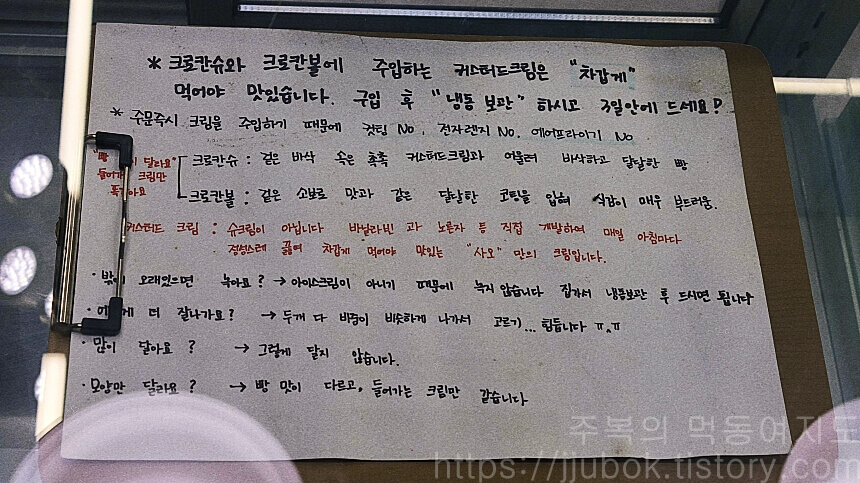 * 크로칸슈와 크로칸볼에 주입하는 커스터드크림은 "차갑게"
먹어야 맛있습니다. 구입 후 "냉동 보관" 하시고 3일안에 드세요!
* 주문즉시 크림을 주입하기 때문에 컷팅 No, 전자렌지 No. 에어프라이기 No
달라요"
크림만
크로칸슈 : 겉은 바삭 속은 촉촉 커스터드크림과 어울려 바삭하고 달달한 빵
크로칸볼 : 겉은 소보로 맛과 같은 달달한 코팅을 입혀 식감이 매우 부드러움.
커스터드 크림 : 슈크림이 아닙니다 바닐라빈 과 노른자 등 직접 개발하여 매일 아침마다
정성스레 끓여 차갑게 먹어야 맛있는 "사오" 만의 크림입니다.
· 밖에 오래있으면 녹아요? → 아이스크림이 아니기 때문에 녹지 않습니다 집가서 냉동보관 후 드시면 됩니다
· 더 잘나가요? → 두개 다 비중이 비슷하게 나가서 고르기... 힘듭니다 ㅠ^ㅠ
· 많이 달아요? → 그렇게 달지 않습니다.
· 모양만 달라요? → 빵 맛이 다르고, 들어가는 크림만 같습니다
주복의 먹동여지도
https://jjubok.tistory.com